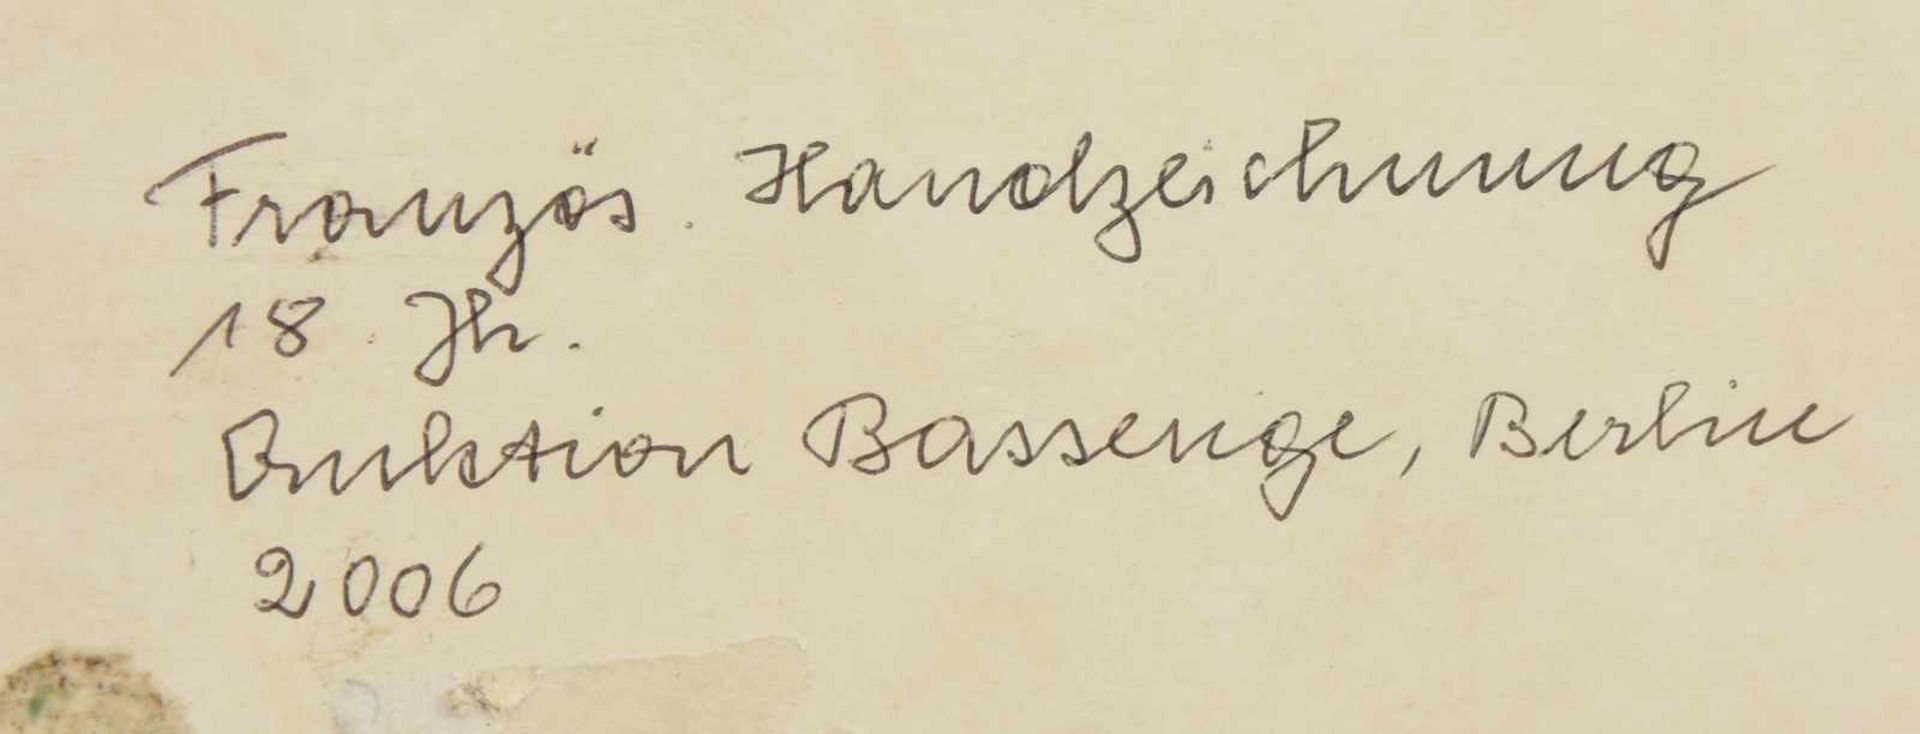 Französ. Handzeichnung
18. Jh.
Auktion Bassenge, Berlin
2006